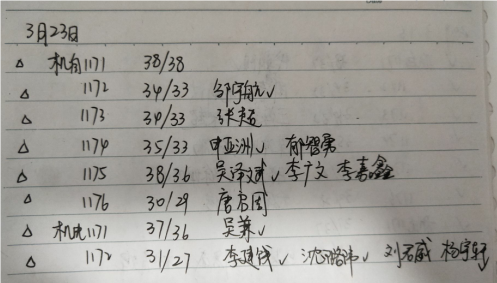 3月23日
△ 机自1171 38/38
△ 1172 34/33 邹宇航✓
△ 1173 34/33 张超
△ 1174 35/33 申亚洲✓ 郁智勇
△ 1175 38/36 吴泽斌✓ 李广文 李嘉鑫
△ 1176 30/29 唐启国
△ 机电1171 37/36 吴兼✓
△ 1172 31/27 李建钱✓ ✓ 刘君威 杨宇轩✓